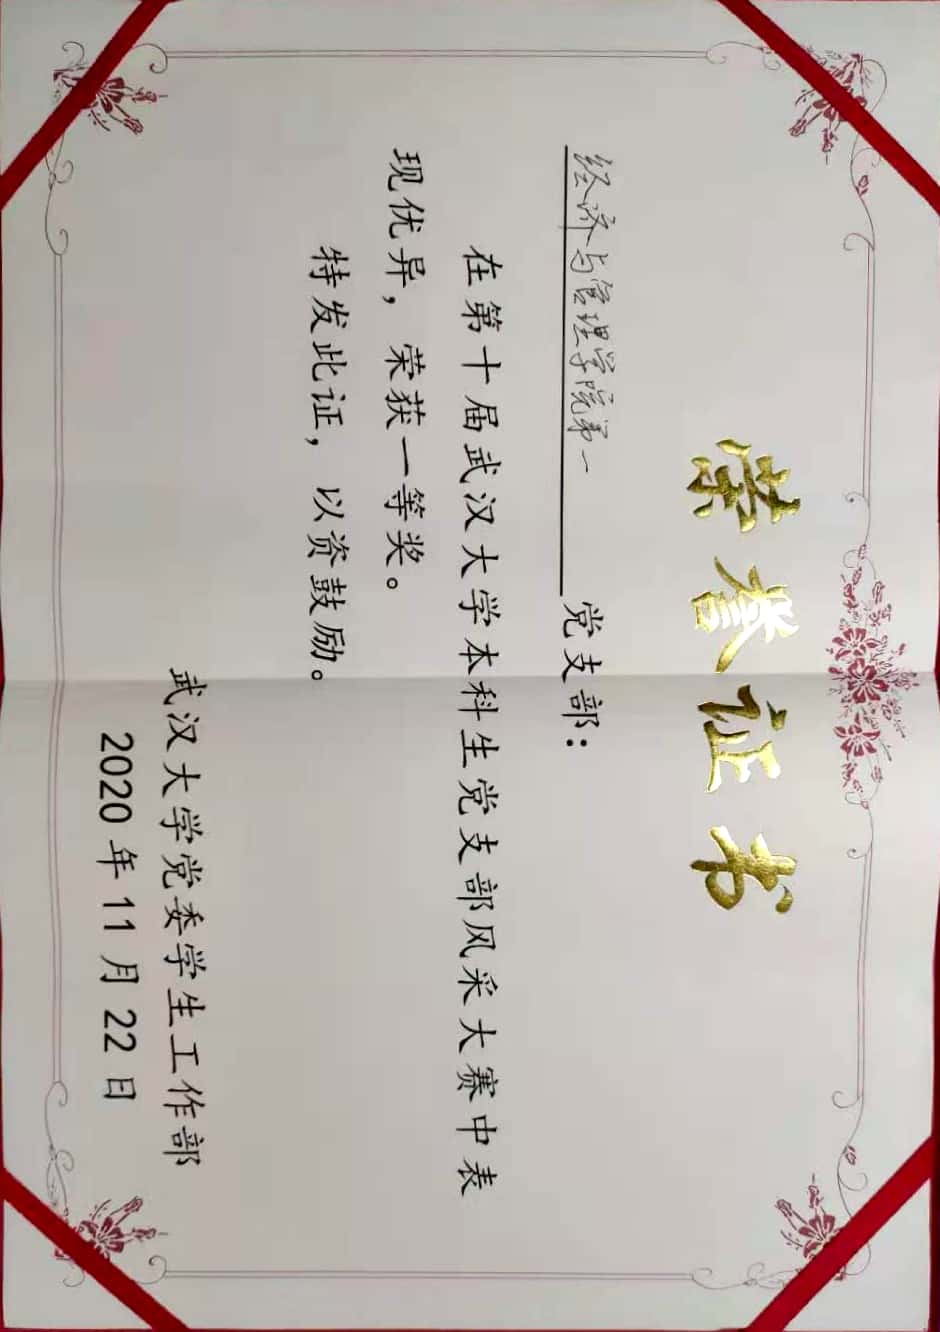 荣誉证书
经济与管理学院第一党支部：
在第十届武汉大学本科生党支部风采大赛中表
现优异，荣获一等奖。
特发此证，以资鼓励。
武汉大学党委学生工作部
2020年11月22日